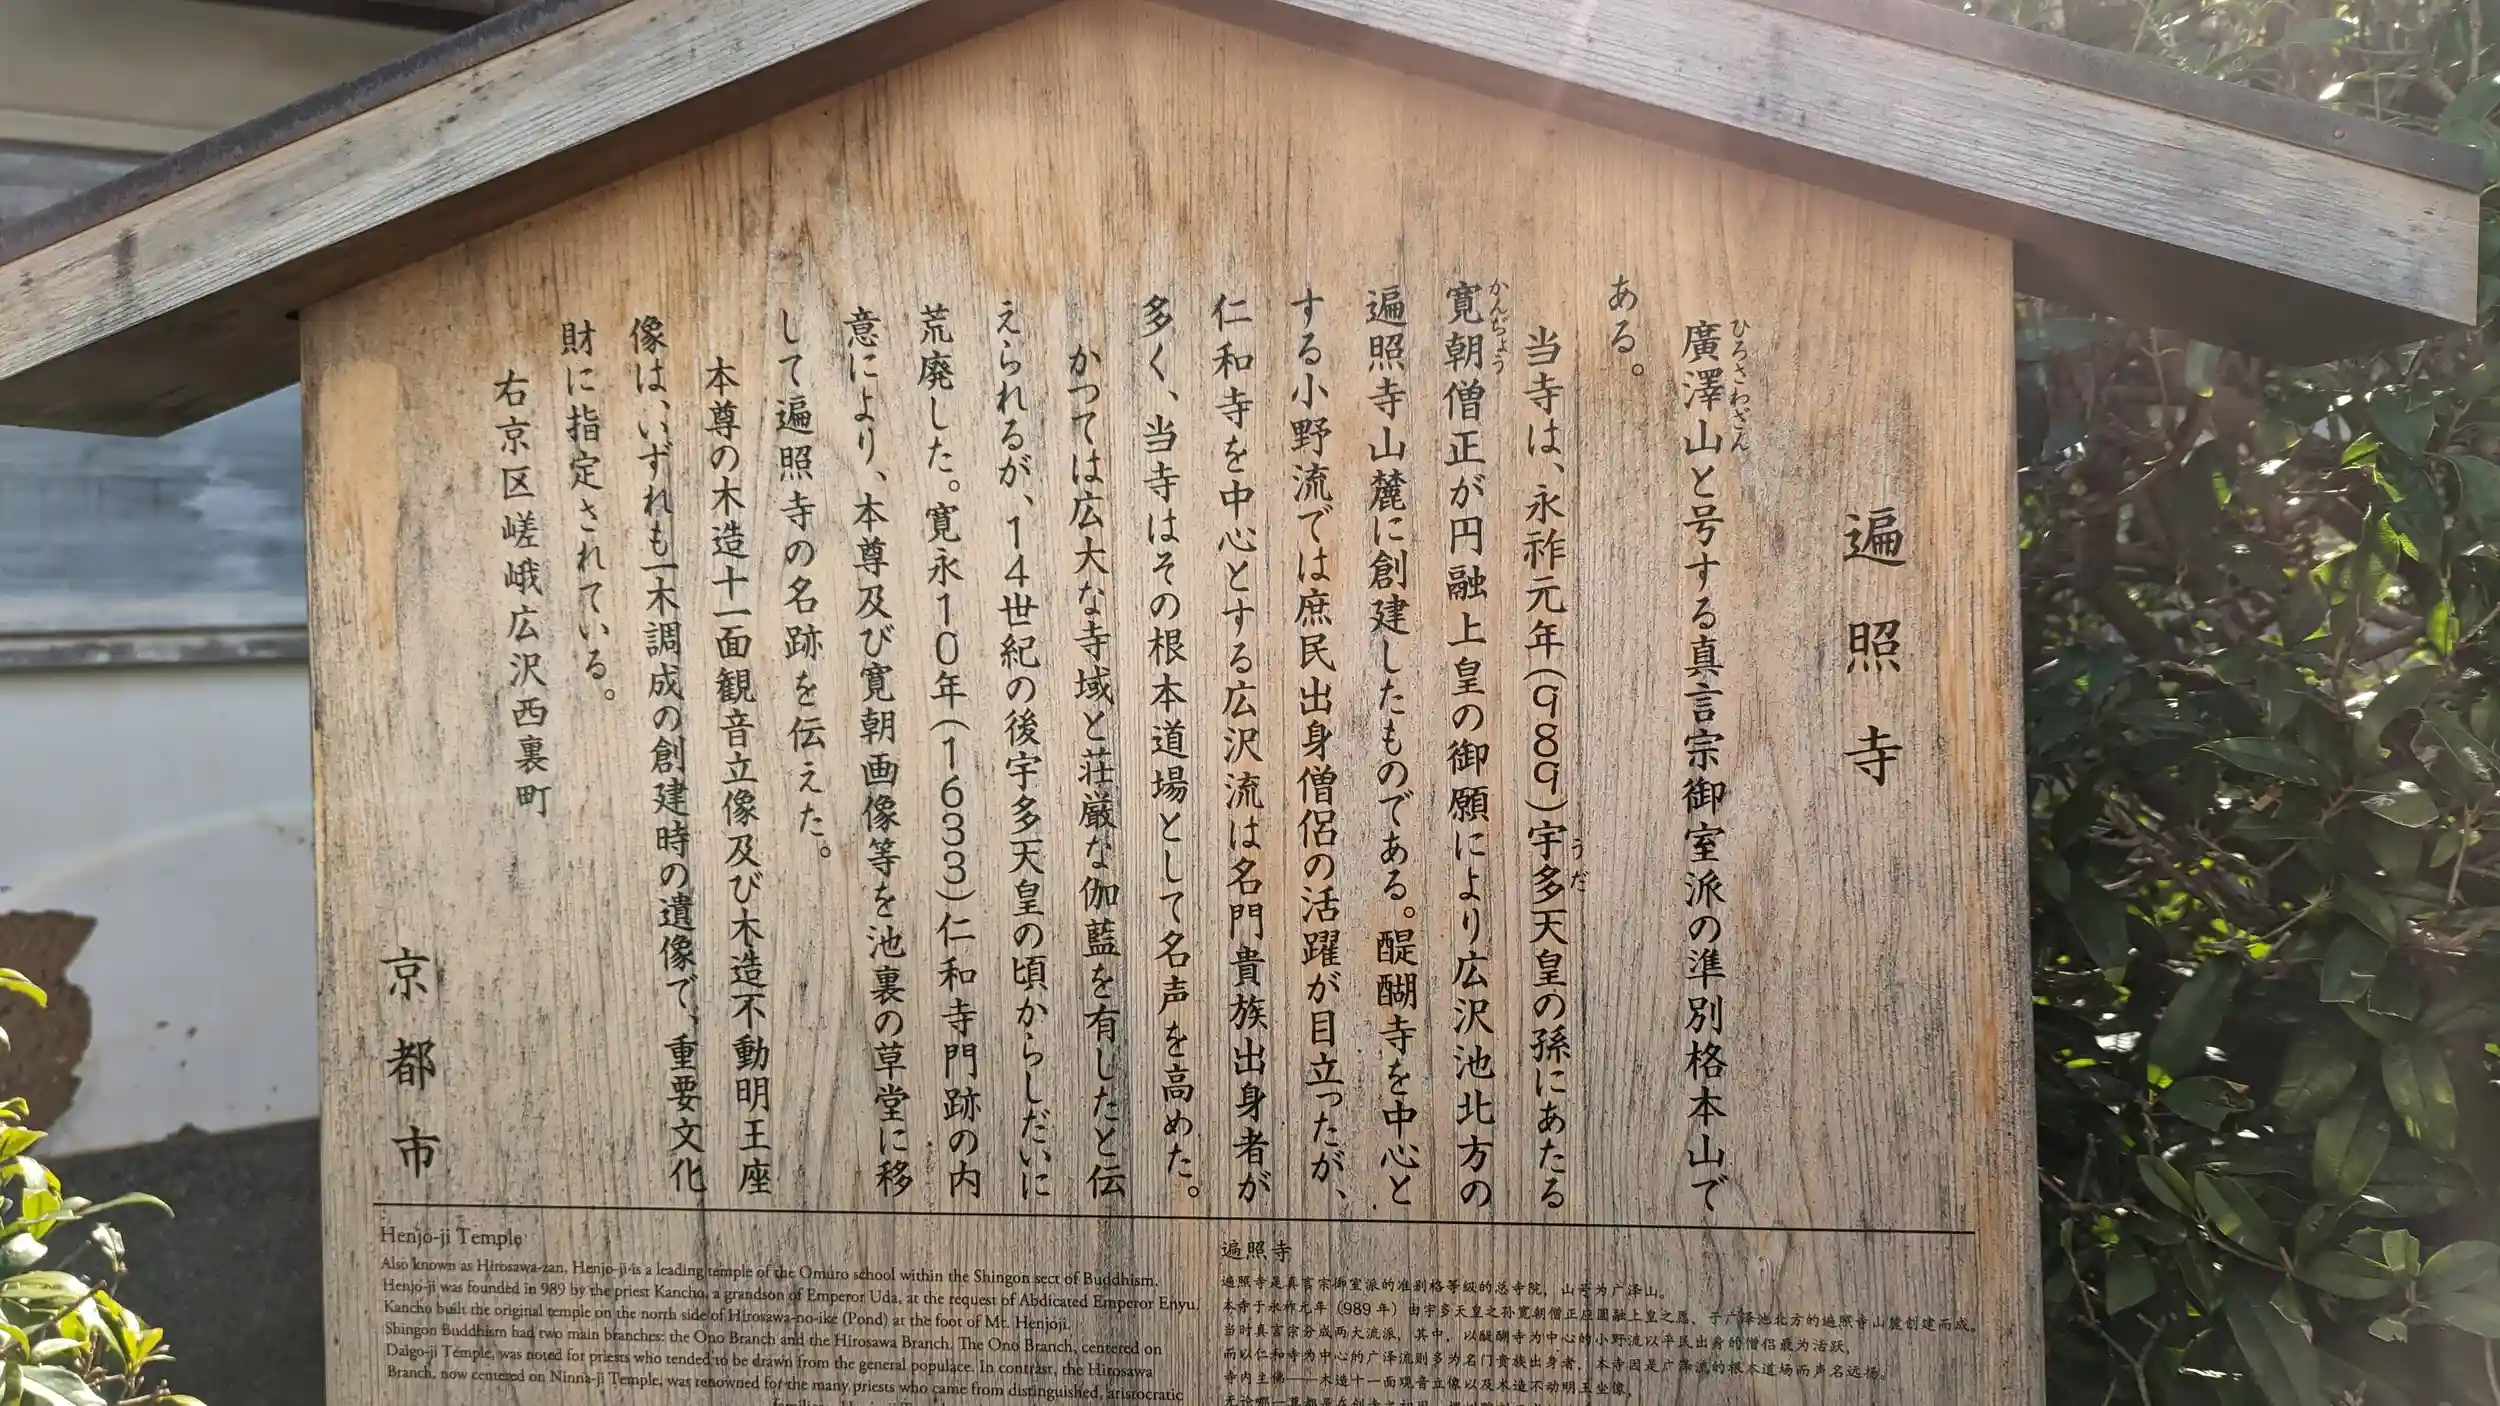 遍照寺
廣澤山と号する真言宗御室派の準別格本山で
ひろさわざん
ある。
当寺は、永祚元年(989)宇多天皇の孫にあたる
うだ
寛朝僧正が円融上皇の御願により広沢池北方の
かんぢょう
遍照寺山麓に創建したものである。醍醐寺を中心と
する小野流では庶民出身僧侶の活躍が目立ったが、
仁和寺を中心とする広沢流は名門貴族出身者が
多く、当寺はその根本道場として名声を高めた。
かつては広大な寺域と荘厳な伽藍を有したと伝
えられるが、14世紀の後宇多天皇の頃からしだいに
荒廃した。寛永10年(1633)仁和寺門跡の内
意により、本尊及び寛朝画像等を池裏の草堂に移
して遍照寺の名跡を伝えた。
本尊の木造十一面観音立像及び木造不動明王座
像は、いずれも一木調成の創建時の遺像で、重要文化
財に指定されている。
右京区嵯峨広沢西裏町
京都市
Henjo-ji Temple
Also known as Hirosawa-zan, Henjo-ji is a leading temple of the Omuro school within the Shingon sect of Buddhism.
Henjo-ji was founded in 989 by the priest Kancho, a grandson of Emperor Uda, at the request of Abdicated Emperor Enyu.
Kancho built the original temple on the north side of Hirosawa-no-ike (Pond) at the foot of Mt. Henjoji.
Shingon Buddhism had two main branches: the Ono Branch and the Hirosawa Branch. The Ono Branch, centered on
Daigo-ji Temple, was noted for priests who tended to be drawn from the general populace. In contrast, the Hirosawa
Branch, now centered on Ninna-ji Temple, was renowned for the many priests who came from distinguished, aristocratic
遍照寺
遍照寺是真言宗御室派的准别格等级的总寺院，山号为广泽山。
本寺于永祚元年（989年）由宇多天皇之孙宽朝僧正应圆融上皇之愿，于广泽池北方的遍照寺山麓创建而成。
当时真言宗分成两大流派，其中，以醍醐寺为中心的小野流以平民出身的僧侣最为活跃，
而以仁和寺为中心的广泽流则多为名门贵族出身者，本寺因是广泽流的根本道场而声名远扬。
寺内主佛——木造十一面观音立像以及木造不动明王坐像，